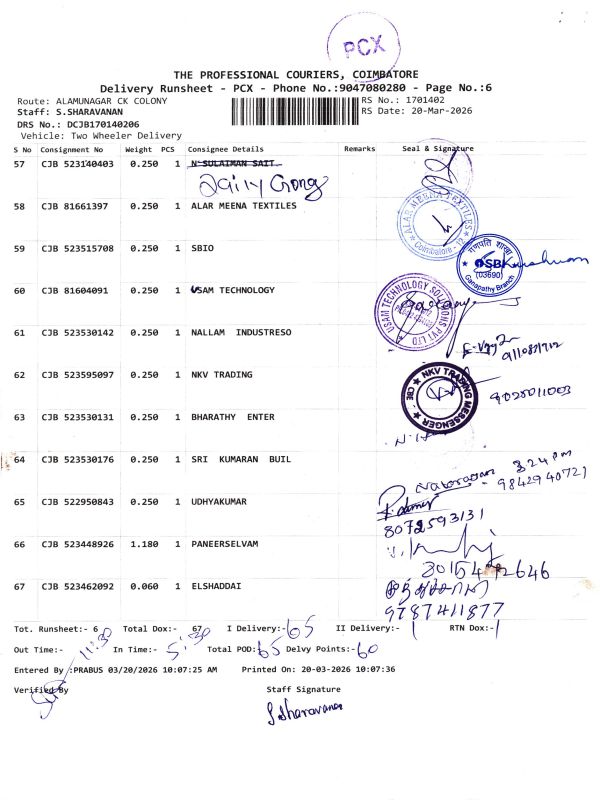 PCX
THE PROFESSIONAL COURIERS, COIMBATORE
Delivery Runsheet - PCX - Phone No.:9047080280 - Page No.:6
Route: ALAMUNAGAR CK COLONY
RS No.: 1701402
Staff: S.SHARAVANAN
RS Date: 20-Mar-2026
DRS No.: DCJB170140206
Vehicle: Two Wheeler Delivery
S No Consignment No Weight PCS Consignee Details Remarks Seal & Signature
57 CJB 523140403 0.250 1 N SULAIMAN SAIT
58 CJB 81661397 0.250 1 ALAR MEENA TEXTILES
ALAR MEENA TEXTILES
Coimbatore - 12
59 CJB 523515708 0.250 1 SBIO
गणपति शाखा
SBI
(03690)
Ganapathy Branch
60 CJB 81604091 0.250 1 USAM TECHNOLOGY
USAM TECHNOLOGY SOLUTIONS PVT LTD
61 CJB 523530142 0.250 1 NALLAM INDUSTRESO
62 CJB 523595097 0.250 1 NKV TRADING
NKV TRADING MESSENGER
CBE
63 CJB 523530131 0.250 1 BHARATHY ENTER
64 CJB 523530176 0.250 1 SRI KUMARAN BUIL
3 24 pm
9842940721
65 CJB 522950843 0.250 1 UDHYAKUMAR
8072593131
66 CJB 523448926 1.180 1 PANEERSELVAM
67 CJB 523462092 0.060 1 ELSHADDAI
9787411877
Tot. Runsheet:- 6 Total Dox:- 67 I Delivery:- 65 II Delivery:- 1 RTN Dox:- 1
Out Time:- 11:30 In Time:- 5:30 Total POD: 65 Delvy Points:- 60
Entered By :PRABUS 03/20/2026 10:07:25 AM Printed On: 20-03-2026 10:07:36
Verified By Staff Signature
S.Sharavanan